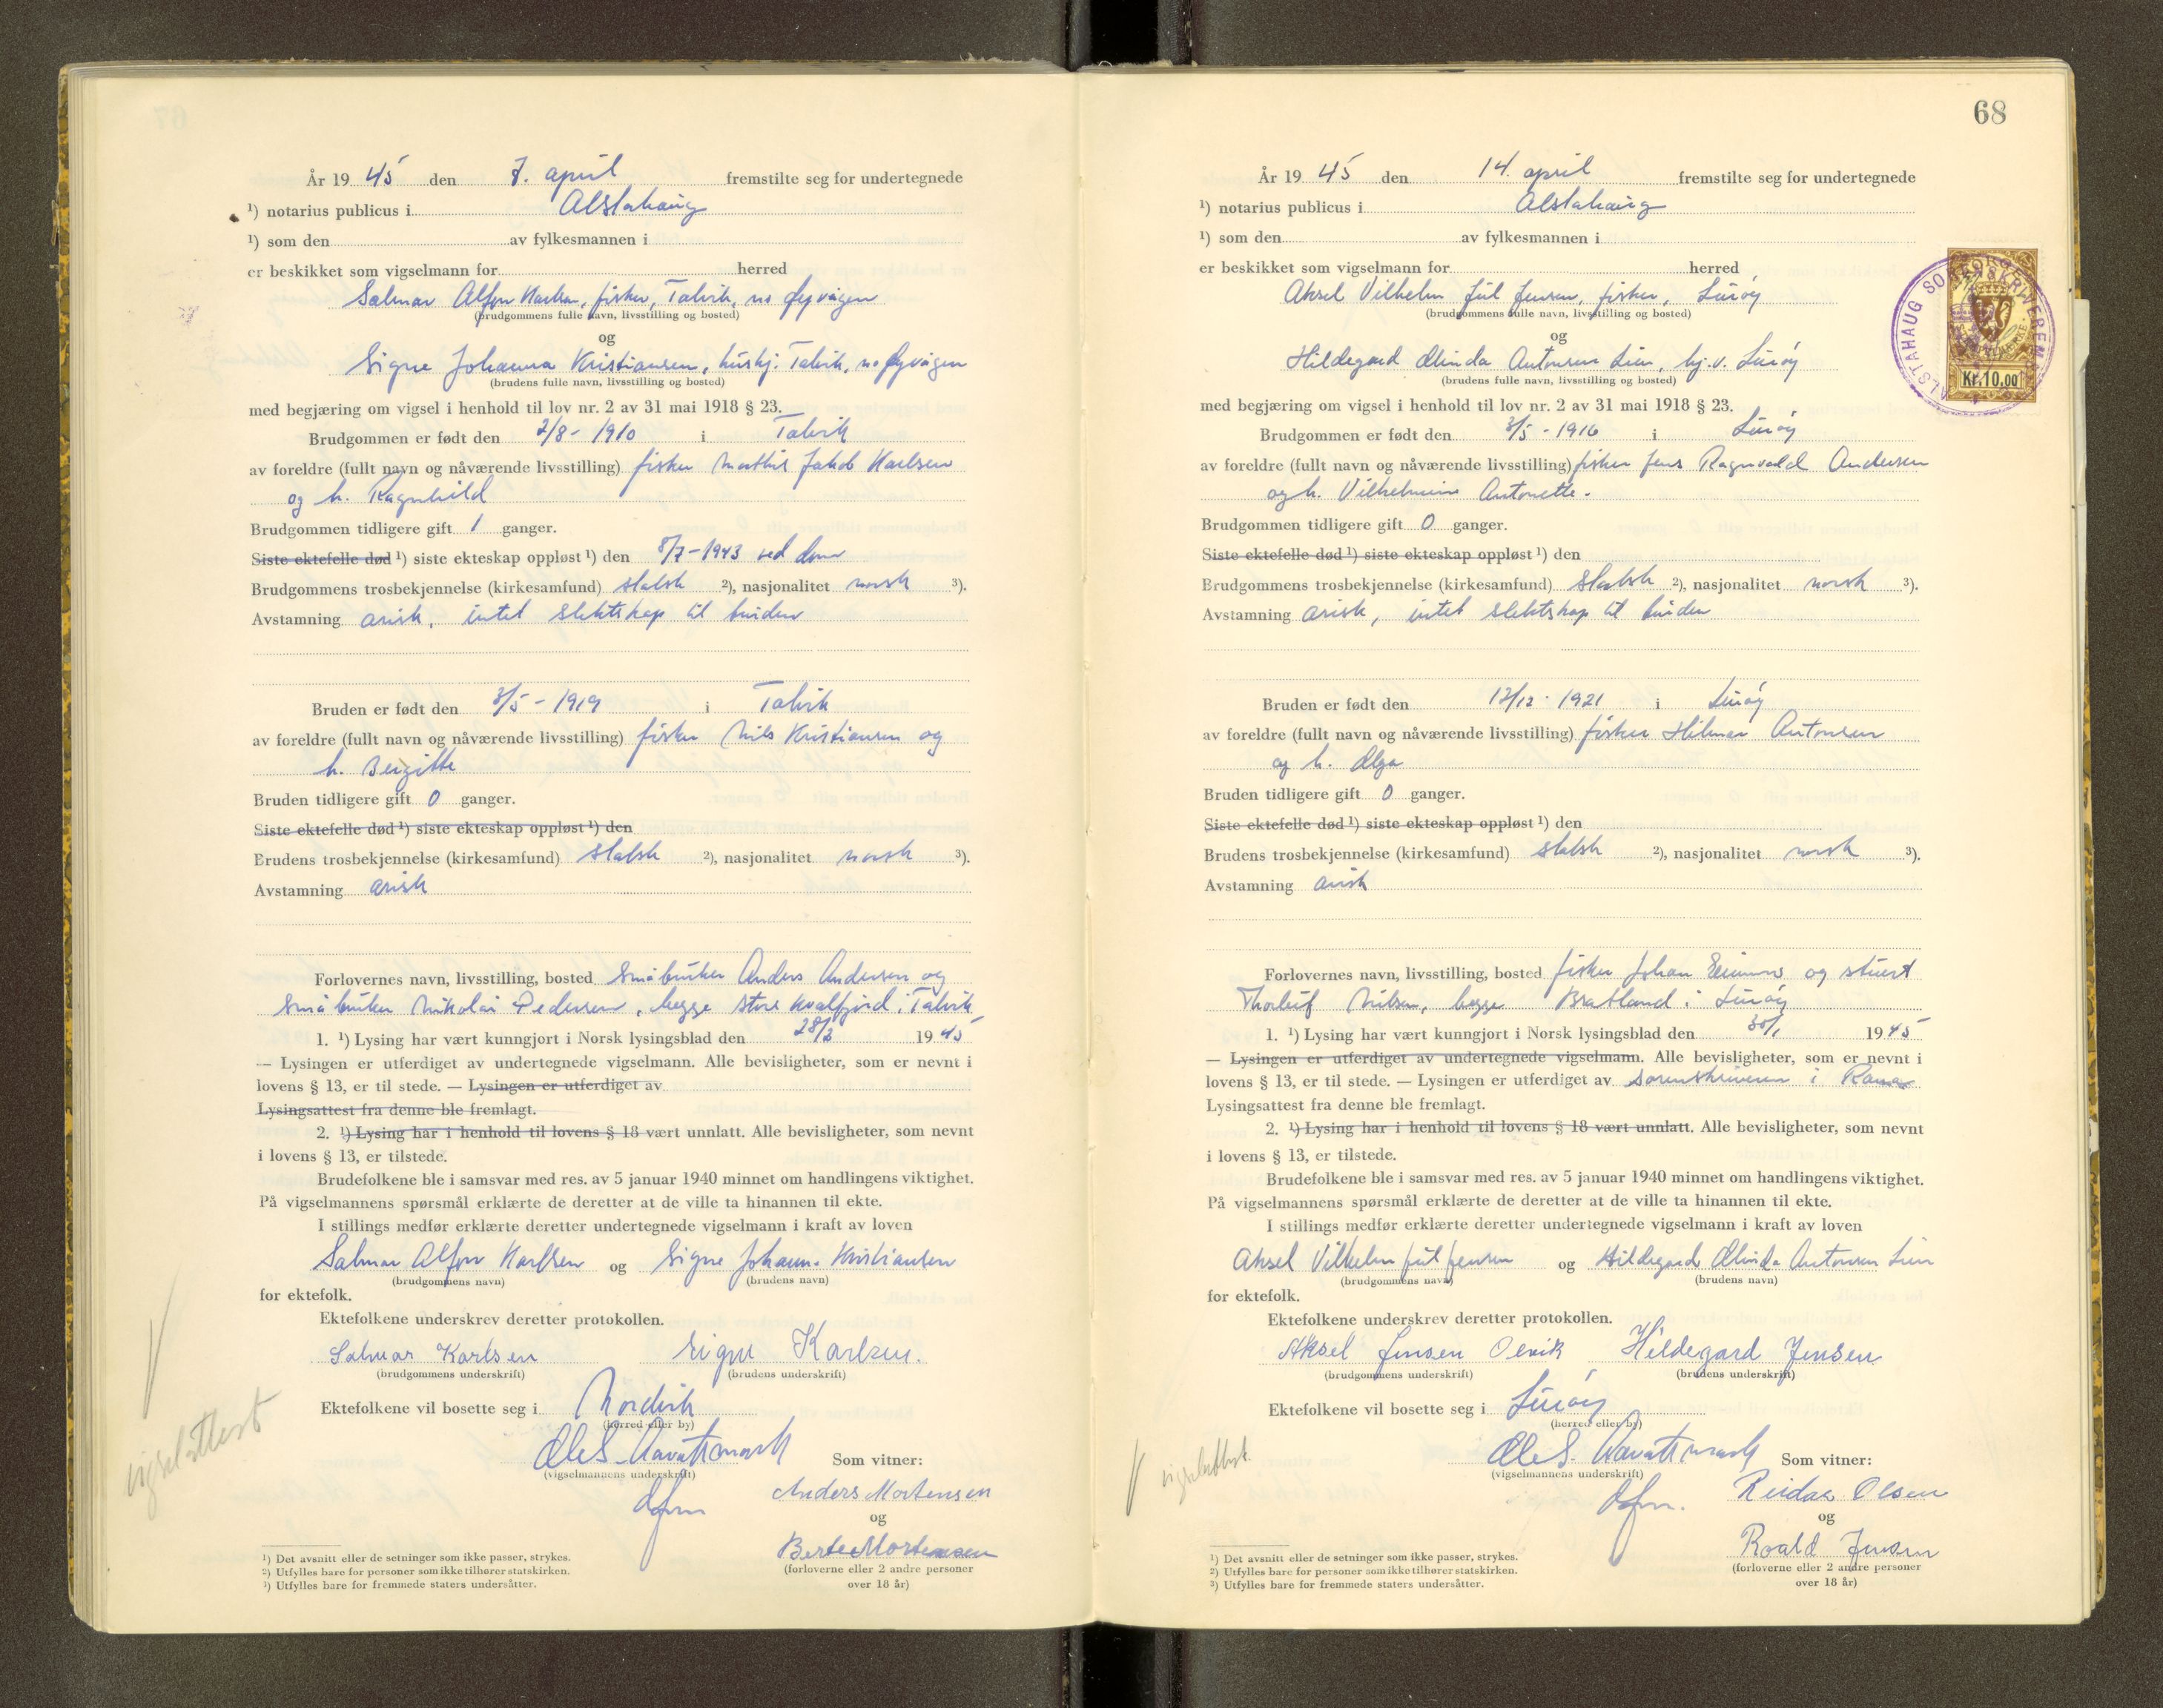 År 19 45 den 7. april fremstilte seg for undertegnede
¹) notarius publicus i Alstahaug
¹) som den av fylkesmannen i
er beskikket som vigselmann for herred
Salmar Alfon Karlsen, fisker, Talvik, nå
(brudgommens fulle navn, livsstilling og bosted)
og
Signe Johanna Kristiansen, hushj. Talvik, nå
(brudens fulle navn, livsstilling og bosted)
med begjæring om vigsel i henhold til lov nr. 2 av 31 mai 1918 § 23.
Brudgommen er født den 2/8 - 1910 i Talvik
av foreldre (fullt navn og nåværende livsstilling) fisker Jakob Karlsen
og h. Ragnhild
Brudgommen tidligere gift 1 ganger.
Siste ektefelle død ¹) siste ekteskap oppløst ¹) den 8/7 - 1943 ved dom
Brudgommens trosbekjennelse (kirkesamfund) statsk ²), nasjonalitet norsk ³).
Avstamning arisk, intet slektskap til bruden
Bruden er født den 3/5 - 1919 i Talvik
av foreldre (fullt navn og nåværende livsstilling) fisker Nils Kristiansen og
h. Bergitte
Bruden tidligere gift 0 ganger.
Siste ektefelle død ¹) siste ekteskap oppløst ¹) den
Brudens trosbekjennelse (kirkesamfund) statsk ²), nasjonalitet norsk ³).
Avstamning arisk
Forlovernes navn, livsstilling, bosted Småbruker Anders Andersen og
Småbruker Nikolai Pedersen, begge Store Kvalfjord i Talvik
1. ¹) Lysing har vært kunngjort i Norsk lysingsblad den 28/2 19 45
— Lysingen er utferdiget av undertegnede vigselmann. Alle bevisligheter, som er nevnt i
lovens § 13, er til stede. — Lysingen er utferdiget av
Lysingsattest fra denne ble fremlagt.
2. ¹) Lysing har i henhold til lovens § 18 vært unnlatt. Alle bevisligheter, som nevnt
i lovens § 13, er tilstede.
Brudefolkene ble i samsvar med res. av 5 januar 1940 minnet om handlingens viktighet.
På vigselmannens spørsmål erklærte de deretter at de ville ta hinannen til ekte.
I stillings medfør erklærte deretter undertegnede vigselmann i kraft av loven
Salmar Alfon Karlsen og Signe Johanna Kristiansen
(brudgommens navn) (brudens navn)
for ektefolk.
Ektefolkene underskrev deretter protokollen.
Salmar Karlsen Signe Karlsen.
(brudgommens underskrift) (brudens underskrift)
Ektefolkene vil bosette seg i Nordvik
(herred eller by)
Ole S. Aavatsmark
(vigselmannens underskrift)
dfm
Som vitner:
Anders Mortensen
og
Berte Mortensen
(forloverne eller 2 andre personer
over 18 år)
vigselattest
¹) Det avsnitt eller de setninger som ikke passer, strykes.
²) Utfylles bare for personer som ikke tilhører statskirken.
³) Utfylles bare for fremmede staters undersåtter.
68
År 19 45 den 14. april fremstilte seg for undertegnede
¹) notarius publicus i Alstahaug
¹) som den av fylkesmannen i
er beskikket som vigselmann for herred
Aksel Vilhelm Jul Jensen, fisker, Lurøy
(brudgommens fulle navn, livsstilling og bosted)
og
Hildegard Olinda Antonsen Lien, hj.v. Lurøy
(brudens fulle navn, livsstilling og bosted)
ALSTAHAUG SORENSKRIVEREMBETE
Kr. 10,00
med begjæring om vigsel i henhold til lov nr. 2 av 31 mai 1918 § 23.
Brudgommen er født den 3/5 - 1916 i Lurøy
av foreldre (fullt navn og nåværende livsstilling) fisker Jens Ragnvald Andersen
og h. Vilhelmine Antonette.
Brudgommen tidligere gift 0 ganger.
Siste ektefelle død ¹) siste ekteskap oppløst ¹) den
Brudgommens trosbekjennelse (kirkesamfund) statsk ²), nasjonalitet norsk ³).
Avstamning arisk, intet slektskap til bruden
Bruden er født den 12/12 - 1921 i Lurøy
av foreldre (fullt navn og nåværende livsstilling) fisker Hilmar Antonsen
og h. Olga
Bruden tidligere gift 0 ganger.
Siste ektefelle død ¹) siste ekteskap oppløst ¹) den
Brudens trosbekjennelse (kirkesamfund) statsk ²), nasjonalitet norsk ³).
Avstamning arisk
Forlovernes navn, livsstilling, bosted fisker Johan og stuert
Thorleif Nilsen, begge Bratland i Lurøy
1. ¹) Lysing har vært kunngjort i Norsk lysingsblad den 30/1 19 45
— Lysingen er utferdiget av undertegnede vigselmann. Alle bevisligheter, som er nevnt i
lovens § 13, er til stede. — Lysingen er utferdiget av sorenskriveren i Rana
Lysingsattest fra denne ble fremlagt.
2. ¹) Lysing har i henhold til lovens § 18 vært unnlatt. Alle bevisligheter, som nevnt
i lovens § 13, er tilstede.
Brudefolkene ble i samsvar med res. av 5 januar 1940 minnet om handlingens viktighet.
På vigselmannens spørsmål erklærte de deretter at de ville ta hinannen til ekte.
I stillings medfør erklærte deretter undertegnede vigselmann i kraft av loven
Aksel Vilhelm Jul Jensen og Hildegard Olinda Antonsen Lien
(brudgommens navn) (brudens navn)
for ektefolk.
Ektefolkene underskrev deretter protokollen.
Aksel Jensen Olvik Hildegard Jensen
(brudgommens underskrift) (brudens underskrift)
Ektefolkene vil bosette seg i Lurøy
(herred eller by)
Ole S. Aavatsmark
(vigselmannens underskrift)
dfm.
Som vitner:
Reidar Olsen
og
Roald Jensen
(forloverne eller 2 andre personer
over 18 år)
vigselattest.
¹) Det avsnitt eller de setninger som ikke passer, strykes.
²) Utfylles bare for personer som ikke tilhører statskirken.
³) Utfylles bare for fremmede staters undersåtter.